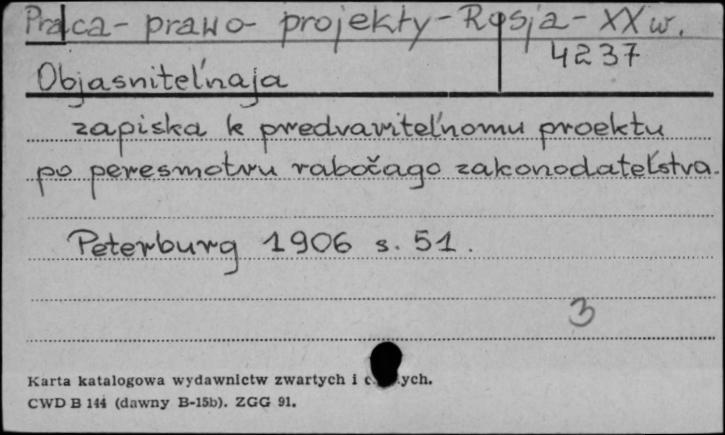 Praca - prawo - projekty - Rosja - XX w.
4237
Objasnitel'naja
zapiska k predvaritel'nomu proektu
po peresmotru rabočago zakonodatel'stva.
Peterburg 1906 s. 51.
3
Karta katalogowa wydawnictw zwartych i
CWD B 144 (dawny B-15b). ZGG 91.